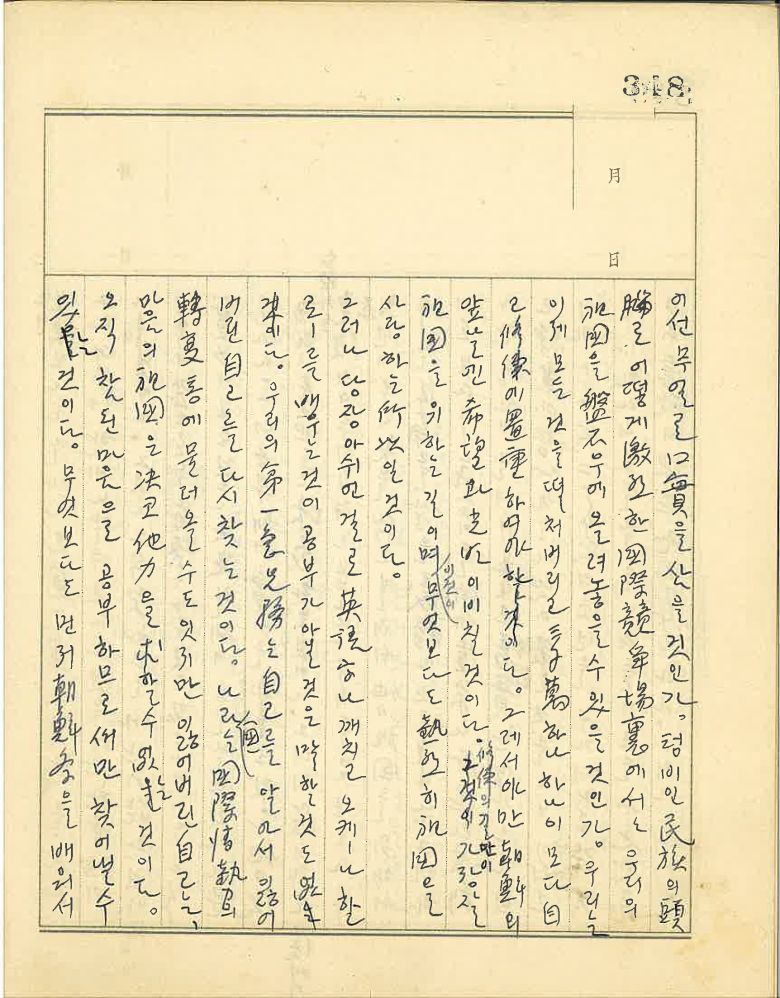 348
月
日
이선 무얼로 口實을 삼을 것인가. 텅비인 民族의 頭
腦로 어떻게 激烈한 國際競爭場裏에서는 우리의
祖國을 盤石우에 올려놓을수 있을 것인가. 우리는
이제 모든 것을 떨처버리고 千萬 하나하나이 모다 自
己修養에 置重하여야 할것이다. 그레서야만 朝鮮의
앞날엔 希望과 光明이 비칠 것이다. 修養의 길만이 그것이 가장 참
祖國을 위하는 길이며 이것이 무엇보다도 熱烈히 祖國을
사랑하는 所以일 것이다.
그러나 당장 아쉬언 걸로 英語字나 깨치고 오케ー나 할
로ー를 배우는것이 공부가 아닐 것은 말할것도 없는
것이다. 우리의 第一急先務는 自己를 알아서 잃어
버린 自己를 다시 찾는 것이다. 나라는 國際情勢의
轉變통에 물너올 수도 있지만 잃어버린 自己는,
마음의 祖國은 决코 他力을 求할수 없을 것이다.
오직 참된 마음으로 공부하므로써만 찾어낼수
있을 것이다. 무엇보다도 먼저 朝鮮字을 배워서